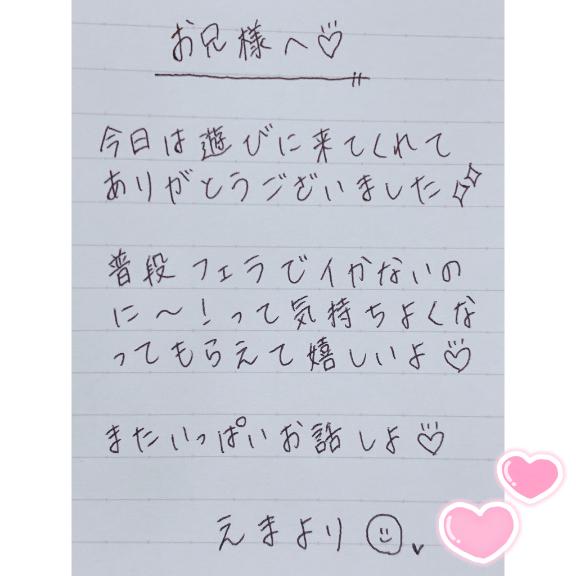 お兄様へ♡
今日は遊びに来てくれて
ありがとうございました✨
普段フェラでイかないの
に〜!って気持ちよくな
ってもらえて嬉しいよ♡
またいっぱいお話しよ♡
えまより